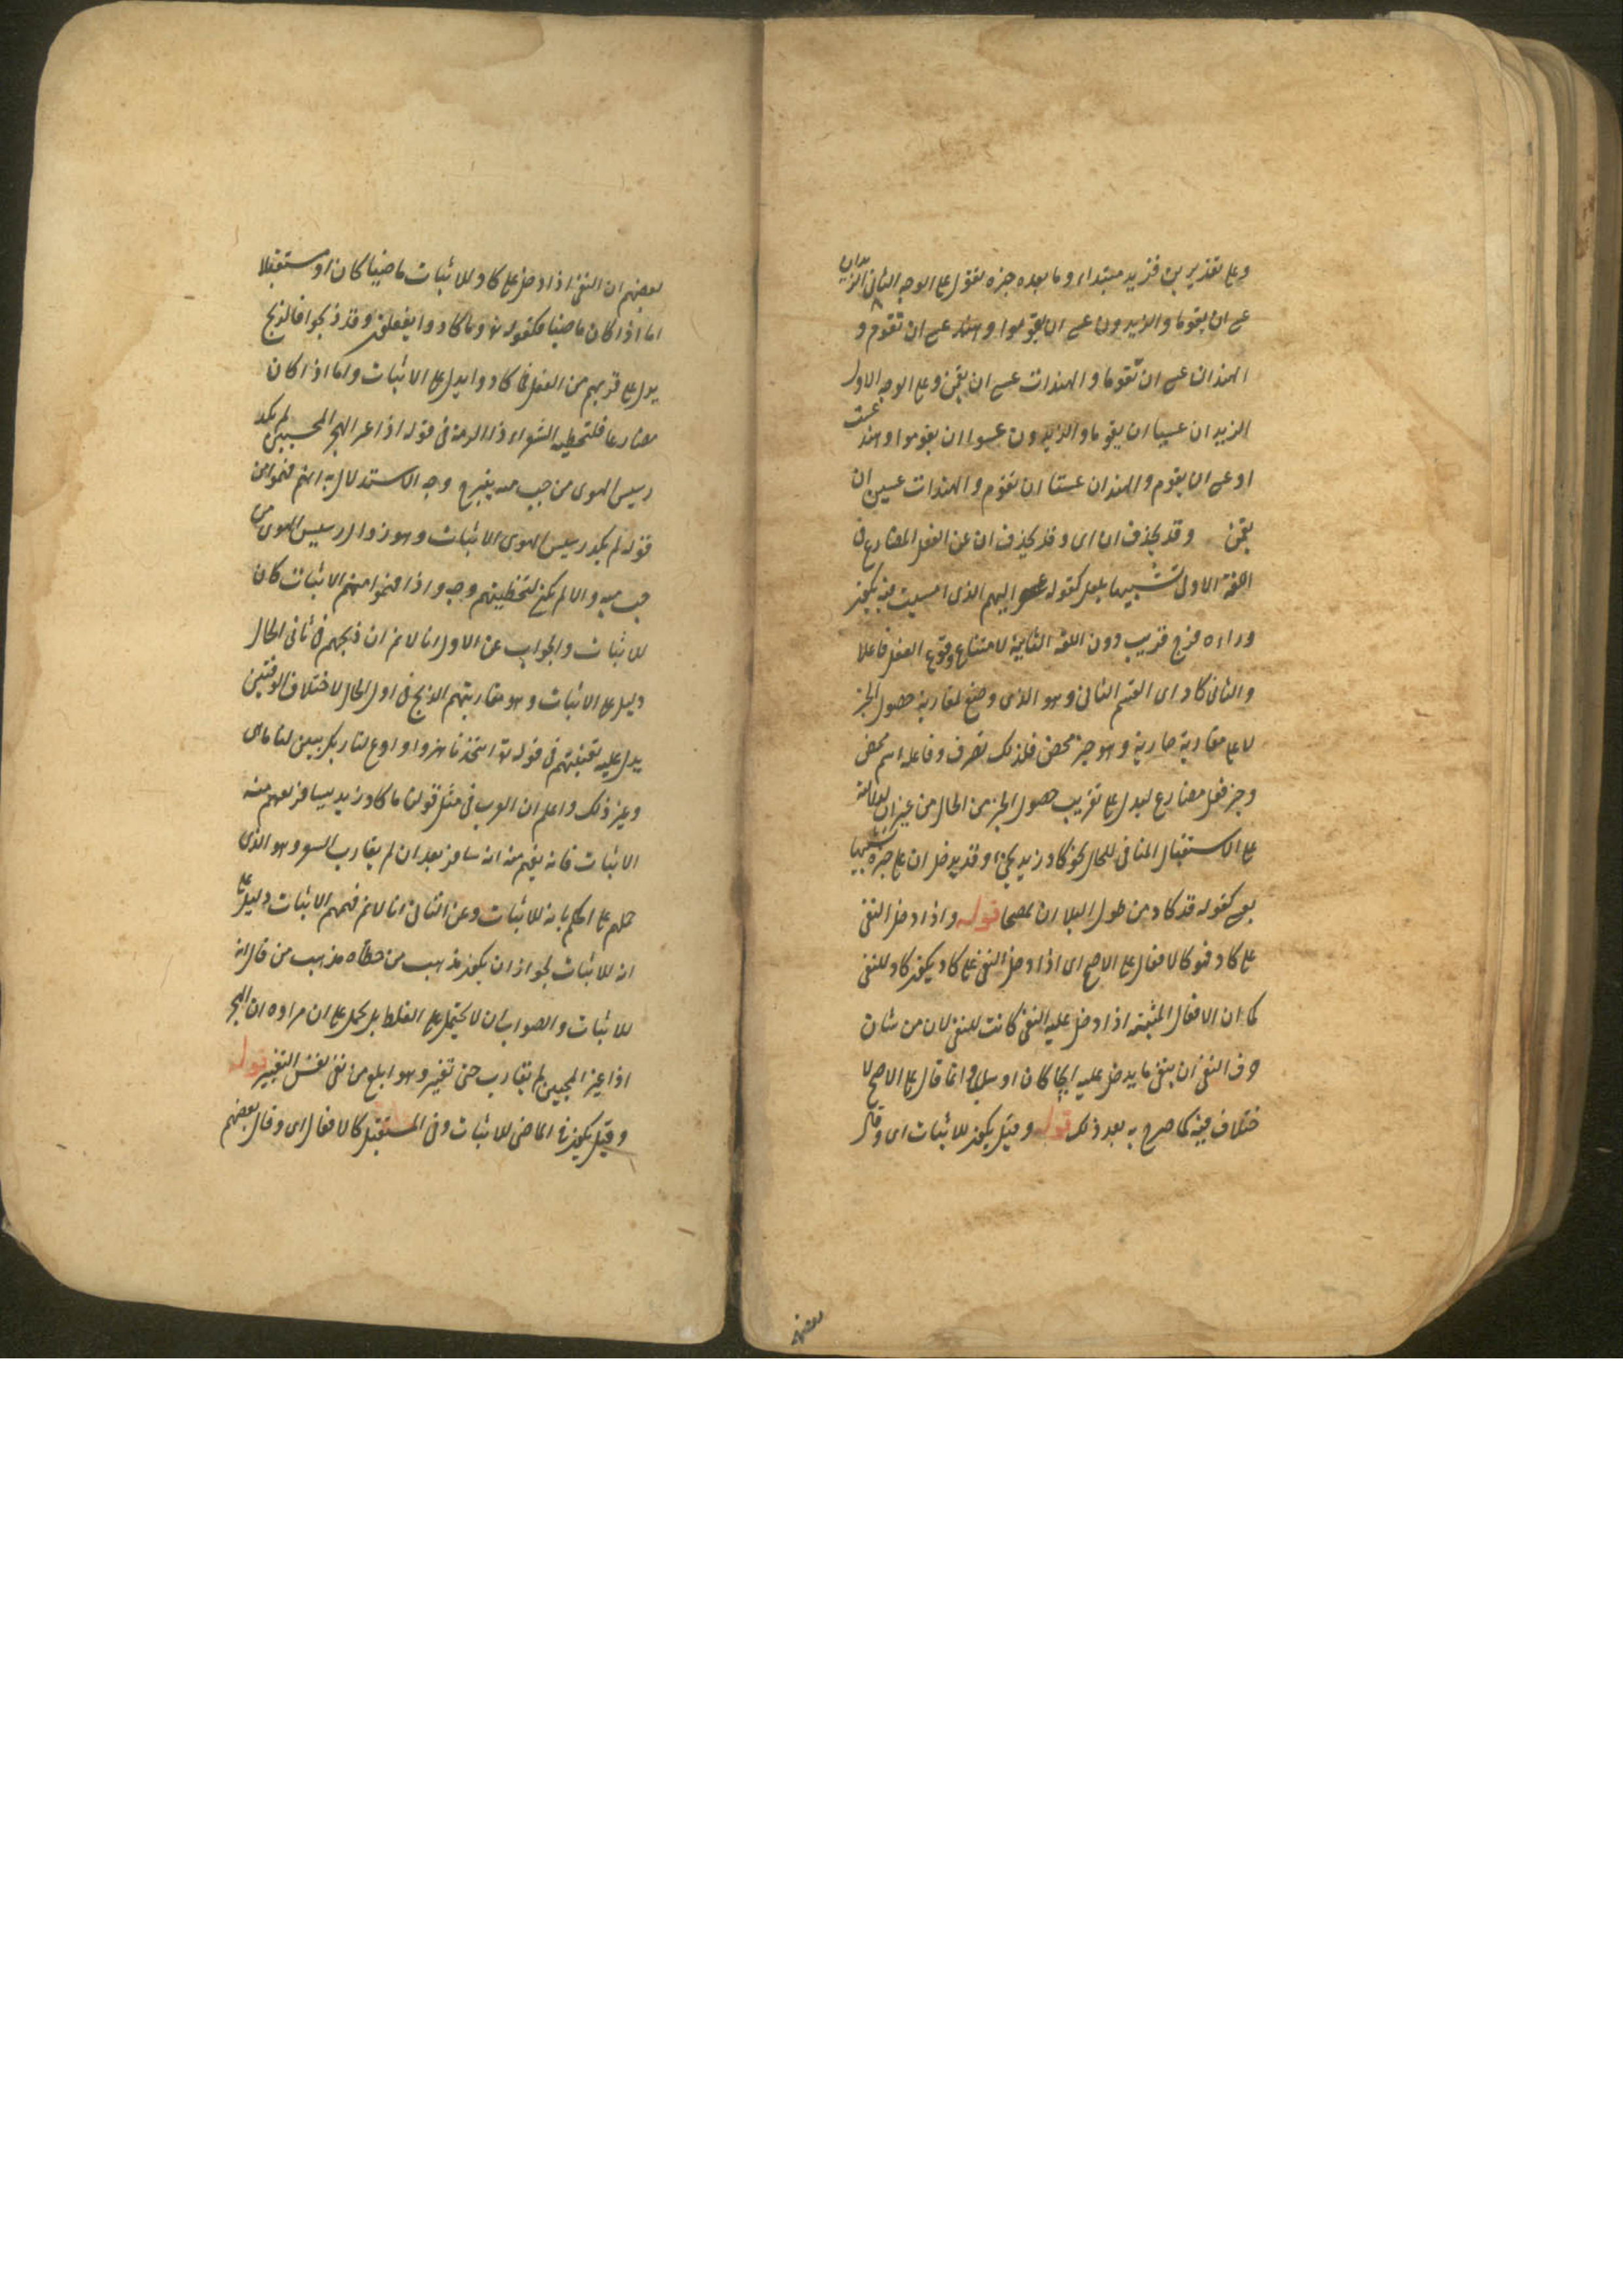 وعلى تقديرين فزيد مبتداء وما بعده خبره تقول على الوجه الثانى الزيدان
عسى ان يقوما والزيدون عسى ان يقوموا وهند عسى ان تقوم و
الهندان عسى ان تقوما والهندات عسى ان يقمن وعلى الوجه الاول
الزيدان عسيا ان يقوما والزيدون عسوا ان يقوموا وهند عست
او عسى ان يقوم والهندان عستا ان تقوم والهندات عسين ان
يقمن وقد يحذف ان اى وقد يحذف ان عن الفعل المضارع فى
اللغة الاولى تشبيها بلعل كقوله عسى الهم الذى امسيت فيه يكون
وراءه فرج قريب دون اللغة الثانية لامتناع وقوع الفعل فاعلا
والثانى كاد اى القسم الثانى وهو الذى وضع لمقاربة حصول الخبر
لا على مقاربة جارية وهو خبر محض فلذلك تصرف وفاعله اسم محض
وخبره فعل مضارع ليدل على تقريب حصول الخبر من الحال من غير ان لدلالته
على الاستقبال المنافى للحال نحو كاد زيد يجئ وقد يدخل ان على خبره تشبيها
بعسى كقوله قد كاد من طول البلا ان يمصحا قوله واذا دخل النفى
على كاد فهو كالافعال على الاصح اى اذا دخل النفى على كاد يكون كاد للنفى
كما ان الافعال المثبتة اذا دخل عليه النفى كانت للنفى لان من شان
حرف النفى ان ينفى ما يدخل عليه ايجابا كان او سلبا وانما قال على الاصح لا
ختلاف فيه كما صرح به بعد ذلك قوله وقيل يكون للاثبات اى وقال
بعضهم
بعضهم ان النفى اذا دخل على كاد للاثبات ماضيا كان او مستقبلا
اما اذا كان ماضيا فكقوله تع وما كادوا يفعلون وقد ذبحوا فالذبح
يدل على قربهم من الفعل فما كادوا يدل على الاثبات واما اذا كان
مضارعا فلتخطية الشعراء ذا الرمة فى قوله اذا غير الهجر المحبين لم يكد
رسيس الهوى من حب مية يبرح وجه الاستدلال به انهم فهموا من
قوله لم يكد رسيس الهوى الاثبات وهو زوال رسيس الهوى من
حب مية والا لم يكن لتخطيتهم وجه واذا فهموا منهم الاثبات كان
للاثبات والجواب عن الاول انا لا نم ان ذبحهم فى ثانى الحال
دليل على الاثبات وهو مقاربتهم الذبح فى اول الحال لاختلاف الوقتين
يدل عليه تعنتهم فى قوله تع اتتخذنا هزوا وادع لنا ربك يبين لنا ما هى
وغير ذلك واعلم ان العرب فى مثل قولنا ما كاد زيد يسافر يفهم منه
الاثبات فانه يفهم منه انه سافر بعد ان لم يقارب السفر وهو الذى
حملهم على الحكم بانه للاثبات وعن الثانى انا لا نم فهمهم الاثبات دليل على
انه للاثبات لجواز ان يكون مذهب من خطاه مذهب من قال انه
للاثبات والصواب ان لا يحتمل على الغلط بل يحمل على ان مراده ان الهجر
اذا غير المحبين لم يقارب حتى تغير وهو ابلغ من نفى نفس التغيير قوله
وقيل يكون فى الماضى للاثبات وفى المستقبل كالافعال اى وقال بعضهم